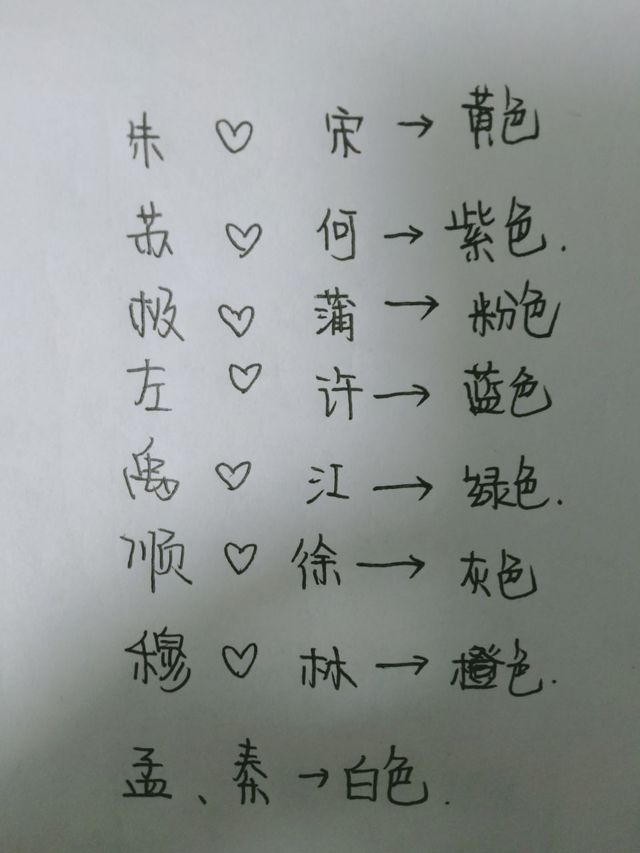 朱 ♡ 宋 → 黄色
苏 ♡ 何 → 紫色.
极 ♡ 蒲 → 粉色
左 ♡ 许 → 蓝色
禹 ♡ 江 → 绿色.
顺 ♡ 徐 → 灰色
穆 ♡ 林 → 橙色.
孟、秦 → 白色.